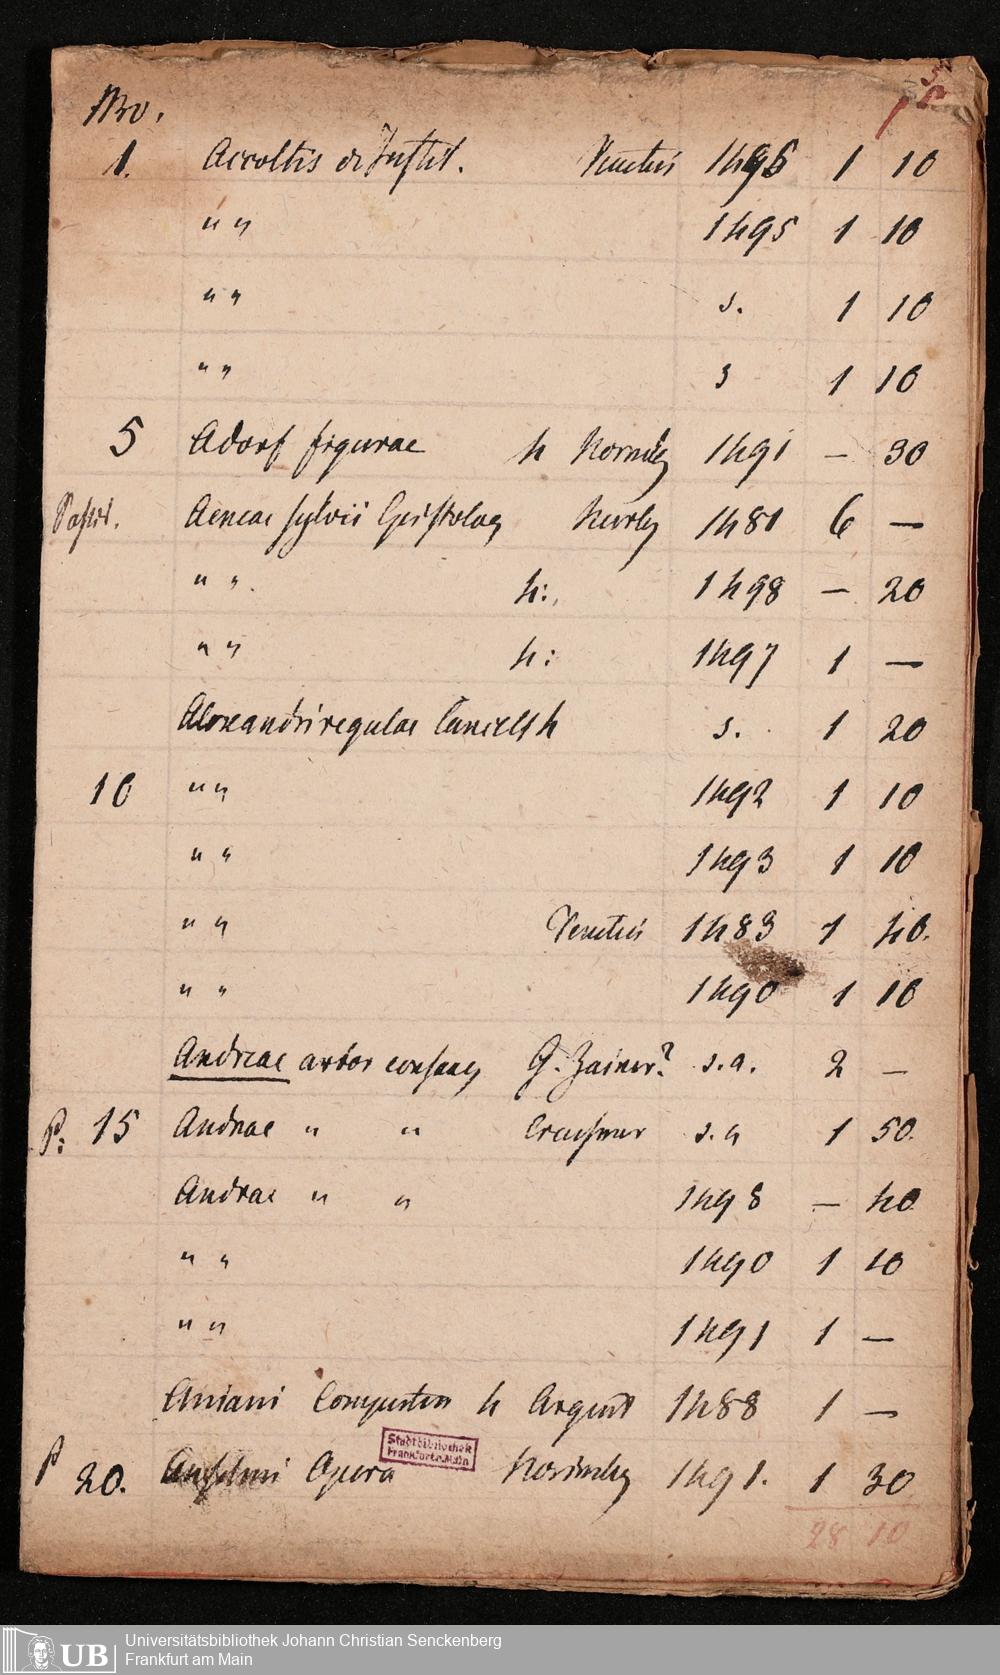 Nro.
1. Accoltis Venetiis 1496 1 10
" " 1495 1 10
" " s. 1 10
" " s 1 10
5 Adorf figurae h Nornbg 1491 — 30
Aeneae Sylvii Epistolae Nurbg 1481 6 —
" " h: 1498 — 20
" " h: 1497 1 —
Alexandri regulae Cancell h s. 1 20
10 " " 1492 1 10
" " 1493 1 10
" " Venetiis 1483 1 40.
" " 1490 1 10
Andreae arbor consang G. Zainer? s.a. 2 —
P: 15 Andreae " " Creusner s.a 1 50.
Andreae " " 1498 — 40
" " 1490 1 10
" " 1491 1 —
Aniani Computus h Argent 1488 1 —
P 20. Anselmi Opera Norimbg 1491. 1 30
Stadtbibliothek
Frankfurt a. Main
28 10
UB
Universitätsbibliothek Johann Christian Senckenberg
Frankfurt am Main